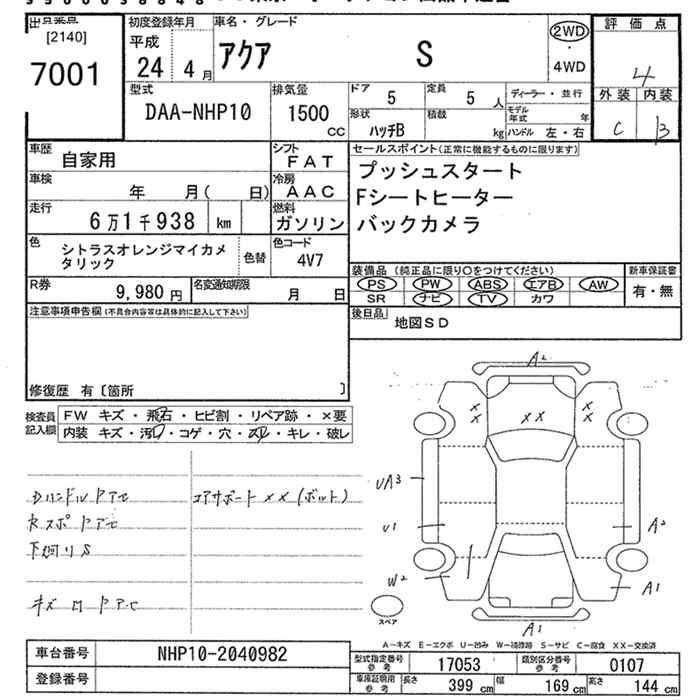 出品業点 初度登録年月 車名・グレード 評価点
[2140] 平成 アクア S 2WD
7001 24 4月 ・ 4WD 4
型式 排気量 ドア 定員 ディーラー・並行 外装 内装
DAA-NHP10 1500 CC 5 5 人 モデル年式 年 C B
形状 積載 ハッチB kg ハンドル 左・右
車歴 自家用 シフト FAT セールスポイント(正常に機能するものに限ります)
車検 年 月( 日) 冷房 AAC プッシュスタート
走行 6万1千938 km 燃料 ガソリン Fシートヒーター
バックカメラ
色 シトラスオレンジマイカメタリック 色替 色コード 4V7
装備品(純正品に限り○をつけてください) 新車保証書
R券 9,980円 名変通知期限 月 日 PS PW ABS エアB AW 有・無
SR ナビ TV カワ
注意事項申告欄(不具合内容等は具体的に記入して下さい) 後日品 地図SD
修復歴 有〔箇所 〕
検査員記入欄 FW キズ・飛石・ヒビ割・リペア跡・×要
内装 キズ・汚れ・コゲ・穴・スレ・キレ・破レ
A2
×× ×× ××
Dハンドル コアサポート ××(ボルト)
UA3
U1 A2
下廻りS
W2 A1
キズ
スペア
A1
A-キズ E-エクボ U-凹み W-補修跡 S-サビ C-腐食 XX-交換済
車台番号 NHP10-2040982 型式指定番号 参考 17053 類別区分番号 参考 0107
登録番号 車庫証明用 参考 長さ 399 cm 幅 169 cm 高さ 144 cm